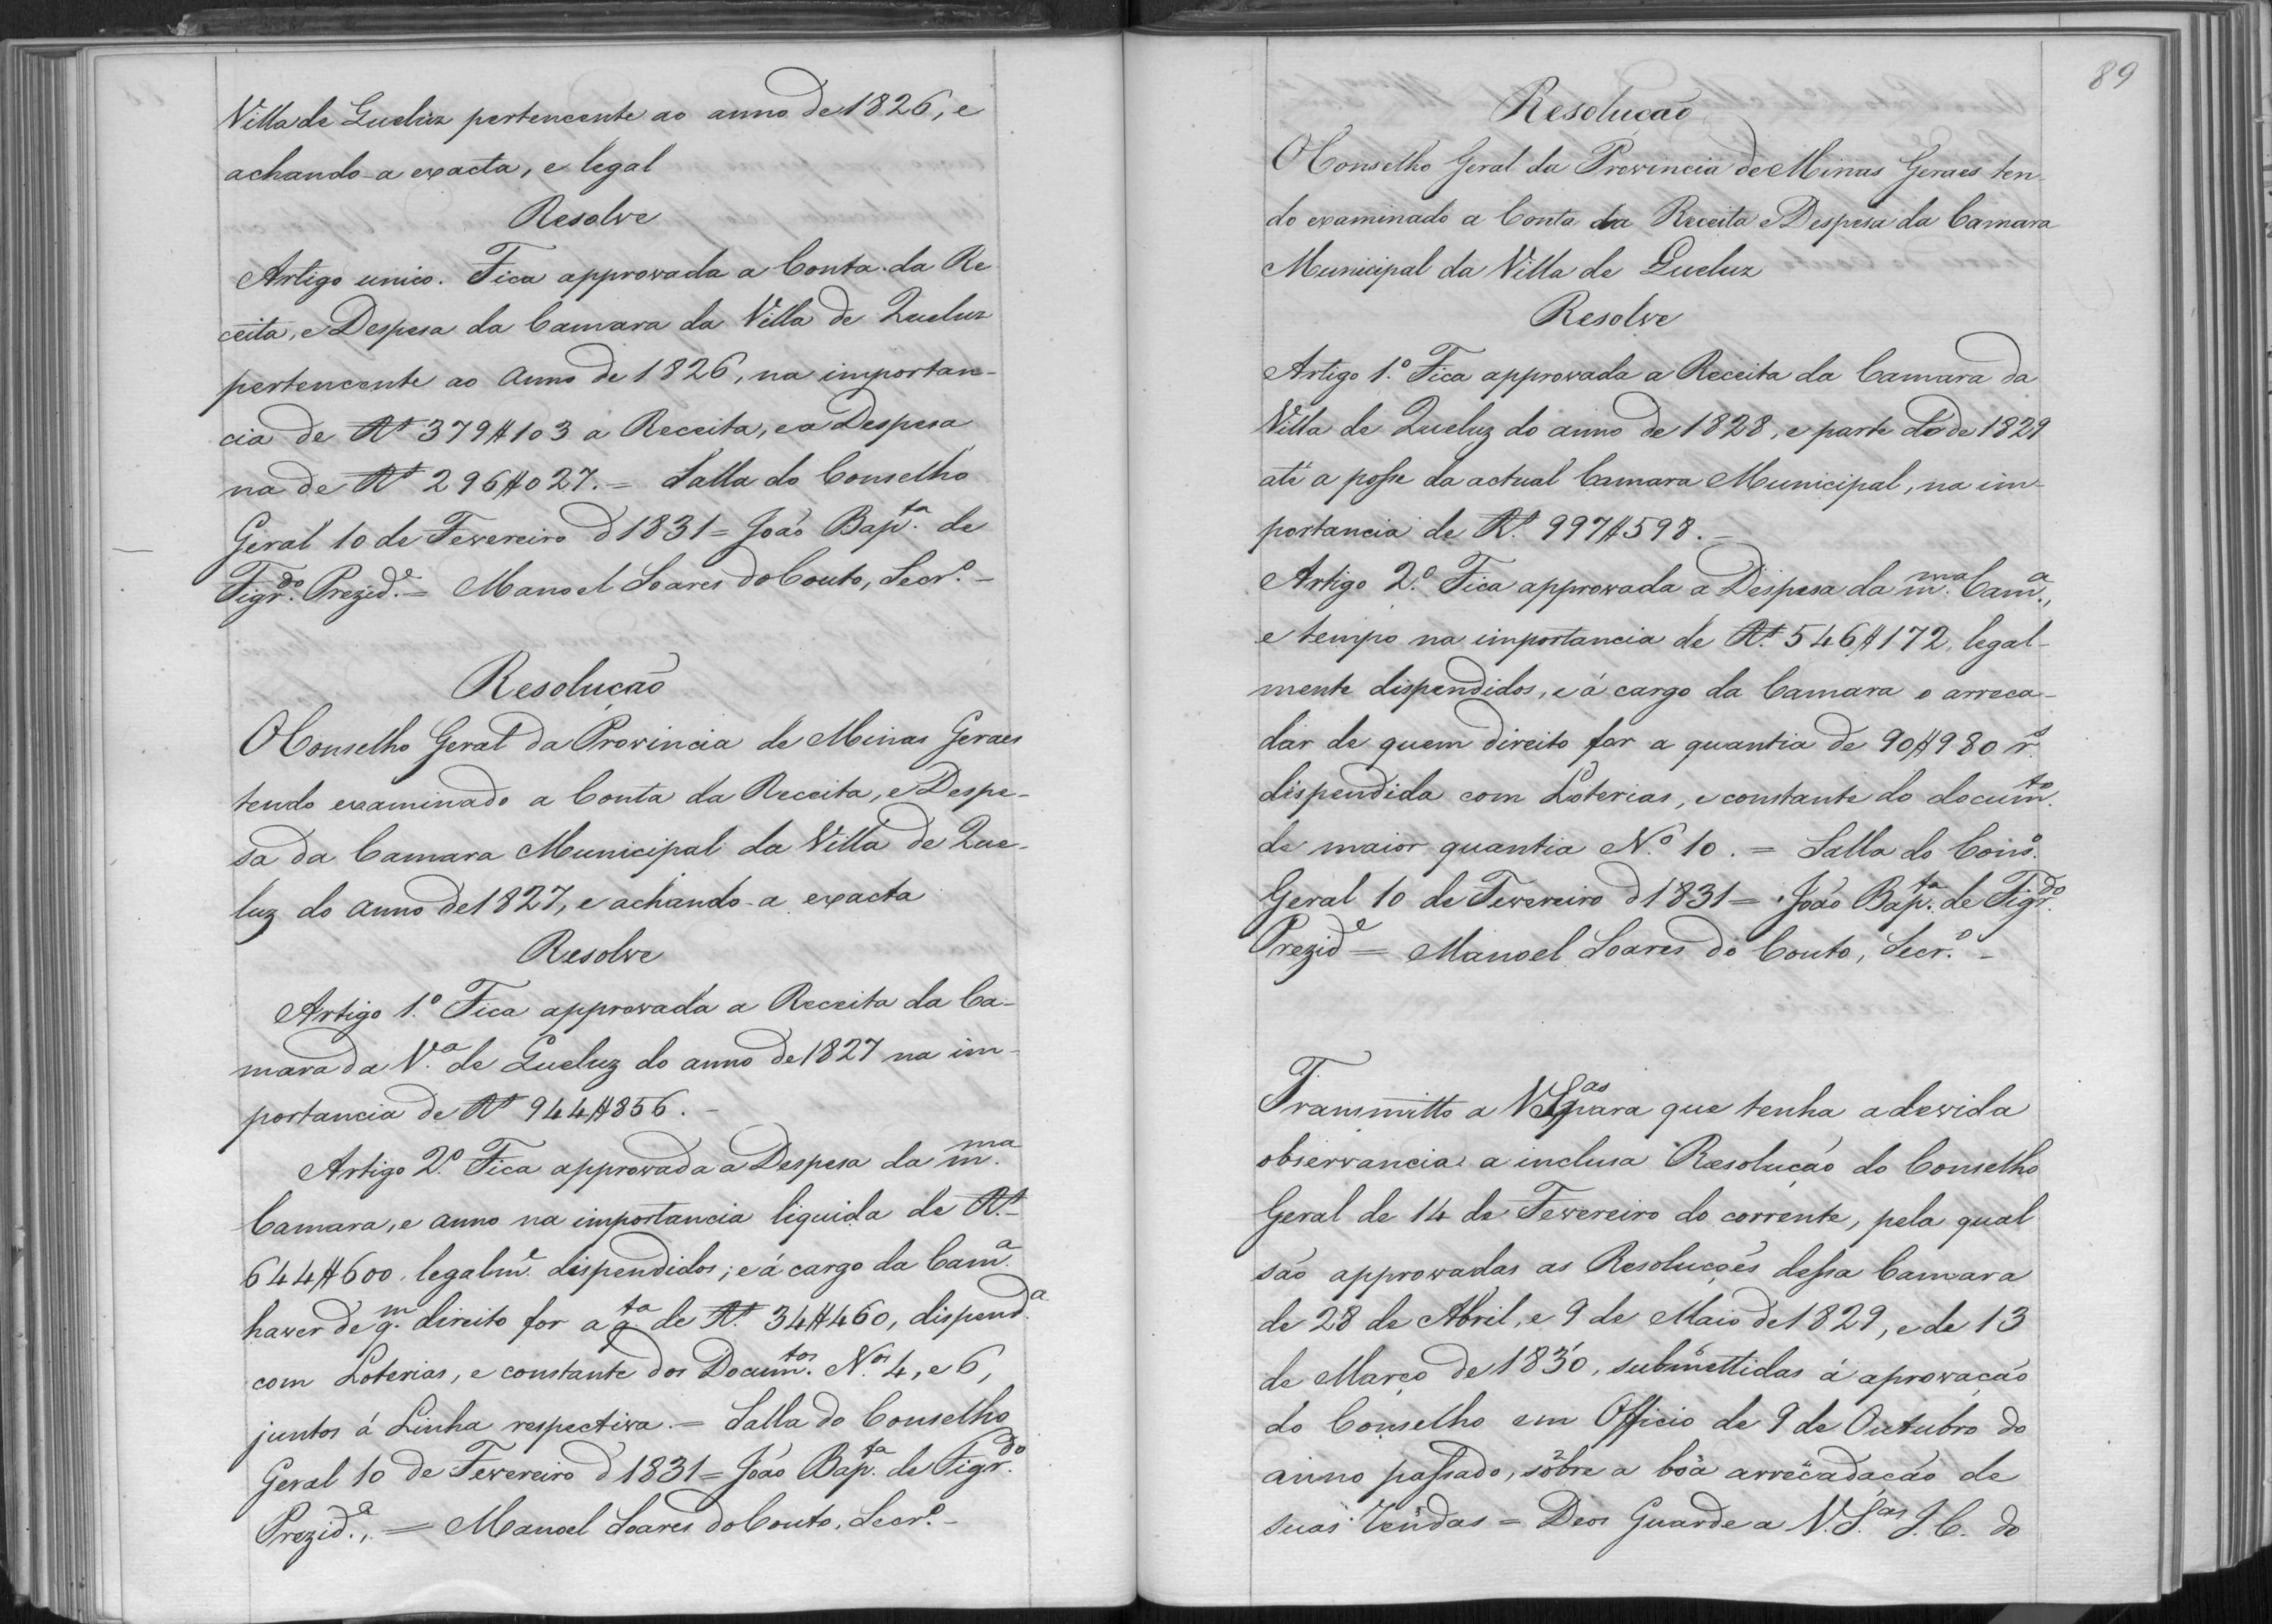 Villa de Queluz pertencente ao anno de 1826, e
achando-a exacta, e legal
Resolve
Artigo unico. Fica approvada a Conta da Re
ceita, e Despesa da Camara da Villa de Queluz
pertencente ao anno de 1826, na importan-
cia de Rs 379$103 a Receita, e a Despesa
na de Rs 296$027. = Salla do Conselho
Geral 10 de Fevereiro d 1831 = João Bapta. de
Figrdo. Prezide. = Manoel Soares do Couto, Secro. -
Resolução
O Conselho Geral da Provincia de Minas Geraes
tendo examinado a Conta da Receita, e Despe-
sa da Camara Municipal da Villa de Que-
luz do anno de 1827, e achando-a exacta
Resolve
Artigo 1.º Fica approvada a Receita da Ca-
mara da Va. de Queluz do anno de 1827 na im-
portancia de Rs 944$856. -
Artigo 2.º Fica approvada a Despesa da mma.
Camara, e anno na importancia liquida de Rs. -
644$600, legalme. dispendidos; e á cargo da Cama.
haver de qm. direito for a qta. de Rs. 34$460, dispenda.
com Loterias, e constante dos Documtos. Nos. 4, e 6,
juntos á Linha respectiva. = Salla do Conselho
Geral 10 de Fevereiro d 1831 = João Bapta. de Figrdo.
Prezide., = Manoel Soares do Couto, Secro. -
89
Resolução
O Conselho Geral da Provincia de Minas Geraes ten-
do examinado a Conta da Receita e Despesa da Camara
Municipal da Villa de Queluz
Resolve
Artigo 1.º Fica approvada a Receita da Camara da
Villa de Queluz do anno de 1828, e parte do de 1829
até a posse da actual Camara Municipal, na im-
portancia de Rs. 997$598. -
Artigo 2.º Fica approvada a Despesa da mma. Cama.,
e tempo na importancia de Rs. 546$172, legal-
mente dispendidos, e á cargo da Camara o arreca-
dar de quem direito for a quantia de 90$980 rs.
dispendida com Loterias, e constante do documto.
de maior quantia N.º 10. = Salla do Conso.
Geral 10 de Fevereiro d 1831 = João Bapta. de Figrdo.
Prezide = Manoel Soares do Couto, Secro. -
Transmitto a VSas para que tenha a devida
observancia a inclusa Resolução do Conselho
Geral de 14 de Fevereiro do corrente, pela qual
são approvadas as Resoluções dessa Camara
de 28 de Abril, e 9 de Maio de 1829, e de 13
de Março de 1830, submettidas á aprovação
do Conselho em Officio de 9 de Outubro do
anno passado, sobre a boa arrecadação de
suas rendas = Deos Guarde a V.Sas. I. C. do